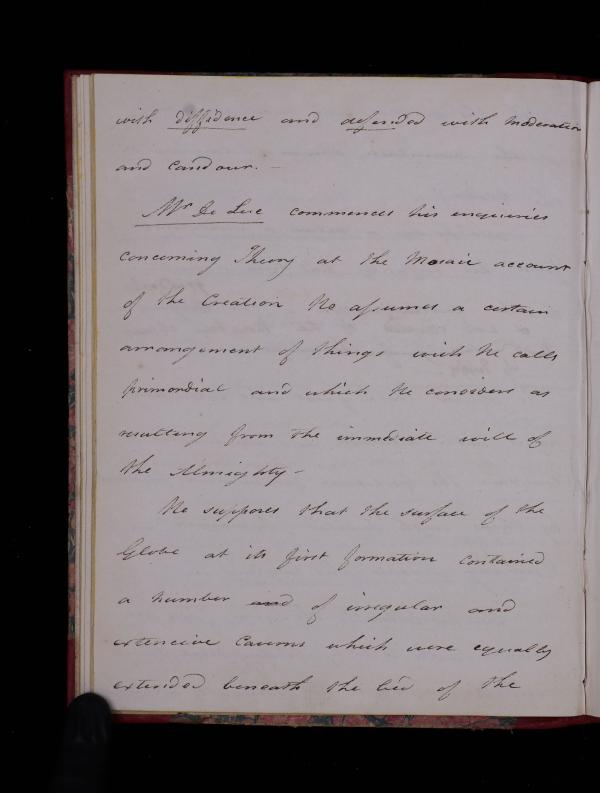 with diffidence and defended with moderation
and candour. —
Mr De Luc commences his enquiries
concerning Theory at the Mosaic account
of the Creation He assumes a certain
arrangement of things wich he calls
primordial and which He considers as
resulting from the immediate will of
the Almighty –
He supposes that the surface of the
Globe at its first formation contained
a number and of irregular and
extencive Caverns which were equally
extended beneath the bed of the